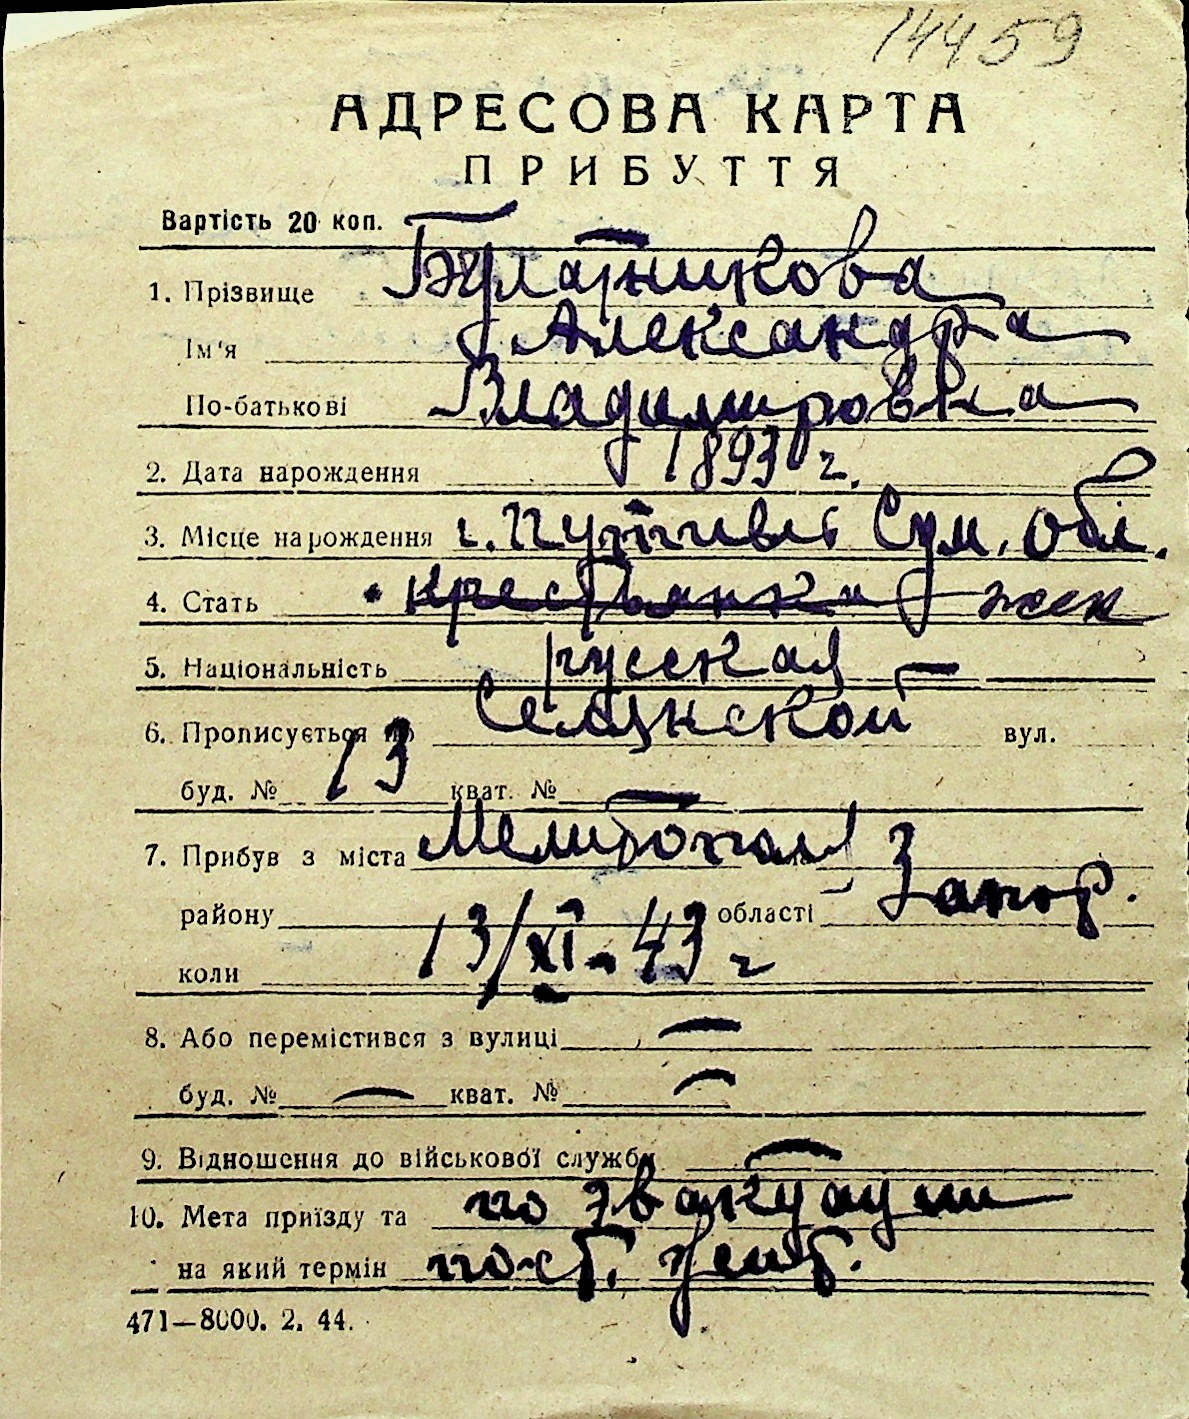 14459
АДРЕСОВА КАРТА
ПРИБУТТЯ
Вартість 20 коп.
1. Прізвище Булатникова
Ім'я Александра
По-батькові Владимировна
2. Дата народження 1893 г.
3. Місце народження г. Путивль Сум. обл.
4. Стать крестьянка жен
5. Національність русская
6. Прописується по вул.
буд. № 13 кват. № —
7. Прибув з міста Мелитополь
району області Запор.
коли 13/XI-43 г
8. Або перемістився з вулиці —
буд. № — кват. № —
9. Відношення до військової служби —
10. Мета приїзду та по эвакуации
на який термін пост. жит.
471—8000. 2. 44.